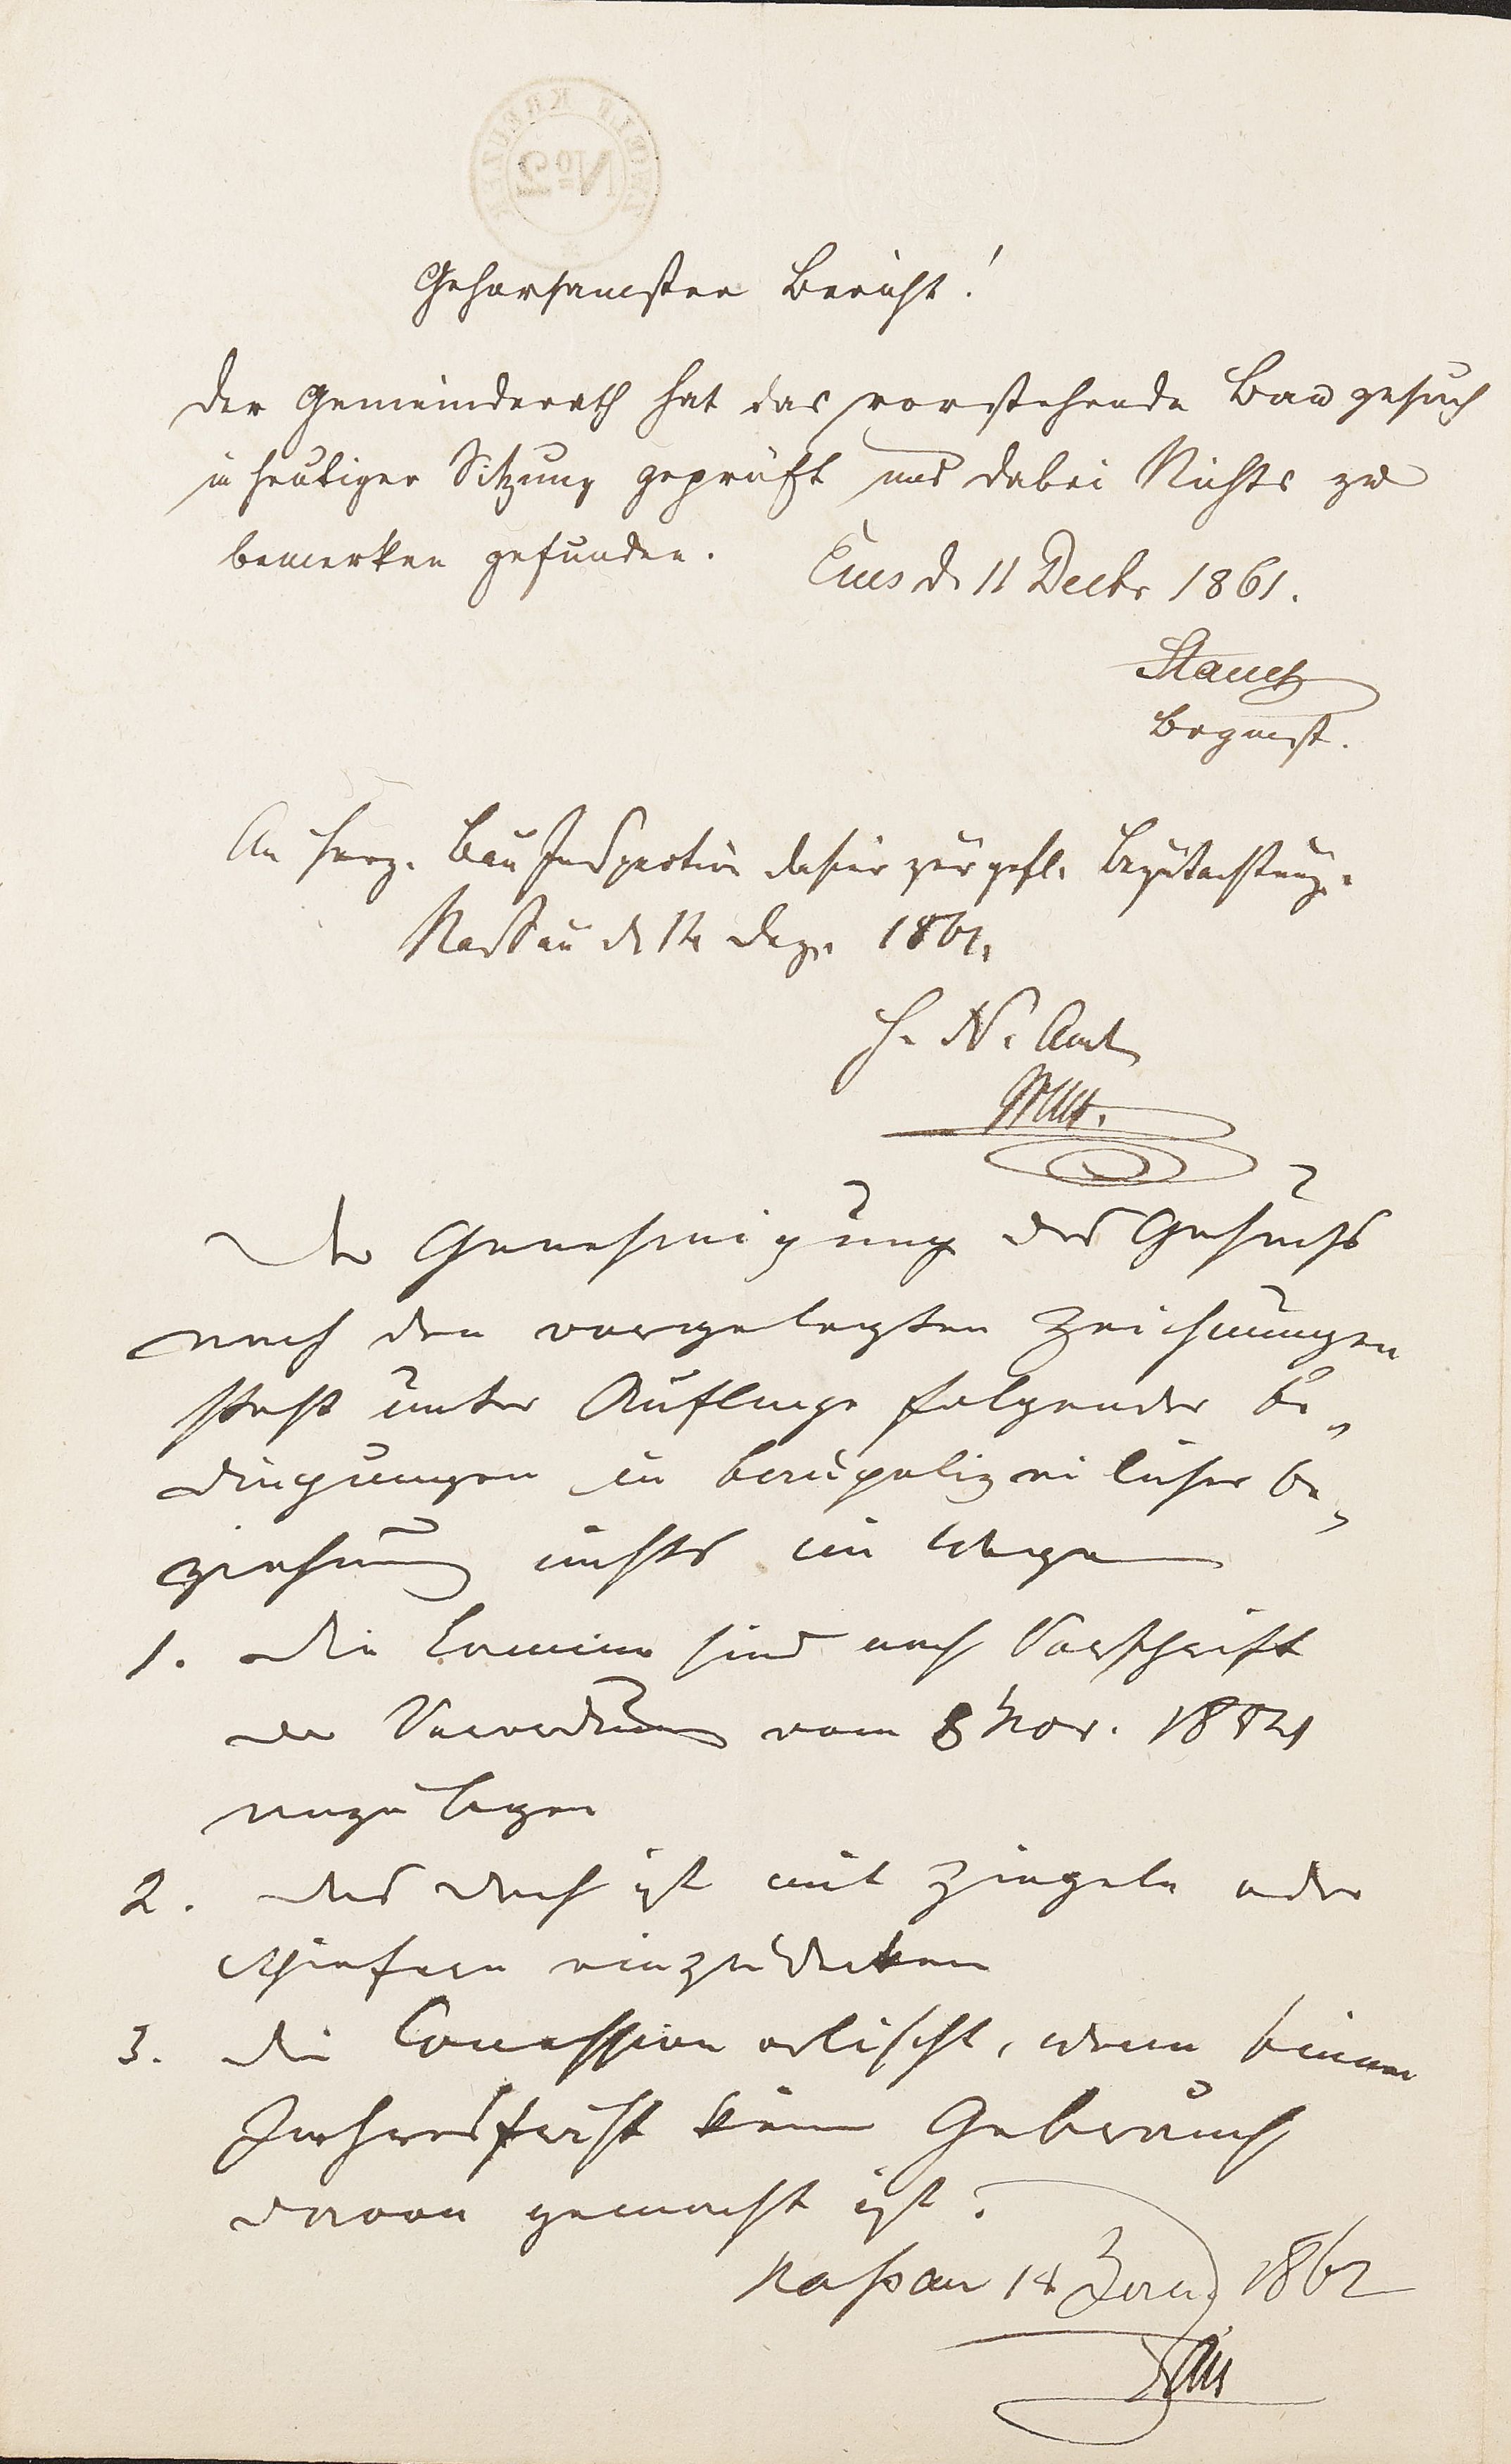 No 2
Gehorsamster Bericht!
Der Gemeinderath hat das vorstehende Baugesuch
in heutiger Sitzung geprüft und dabei Nichts zu
bemerken gefunden.
Ems d. 11 Decbr 1861.
Brgmst.
An Herz. Bau Inspection dahier zur gefl. Begutachtung.
Nassau d. 14 Dez. 1861.
H. N. Amt
Der Genehmigung des Gesuchs
nach den vorgelegten Zeichnungen
steht unter Auflage folgender Be-
dingungen in baupolizeilicher Be-
ziehung nichts im Wege
1. Die Camine sind nach Vorschrift
der Verordnung vom 8 Nov.
anzulegen
2. das Dach ist mit Ziegeln oder
Schiefern einzudecken
3. die Concession erlischt, wenn binnen
Jahresfrist kein Gebrauch
davon gemacht ist.
Nassau 14 Janr 1862